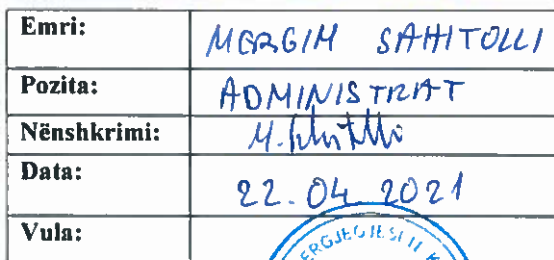 Emri: MERGIM SAHITOLLI
Pozita: ADMINISTRAT
Nënshkrimi:
Data: 22.04.2021
Vula: